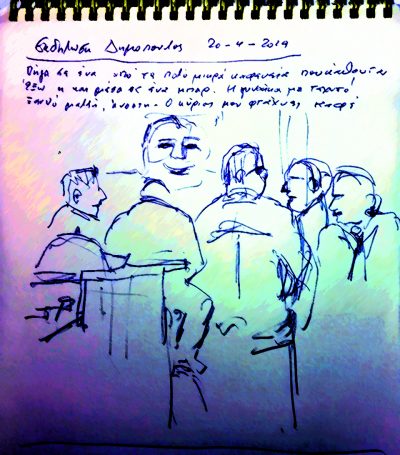 Εκδήλωση Δημοπουλος 20-4-2019
Πήγα σε ένα από τα πολύ μικρά καφενεία που κάθονται
έξω και μέσα σε ένα μπαρ. Η γυναίκα με
ξανθά μαλλιά, Ο κύριος μου φτιάχνει καφέ